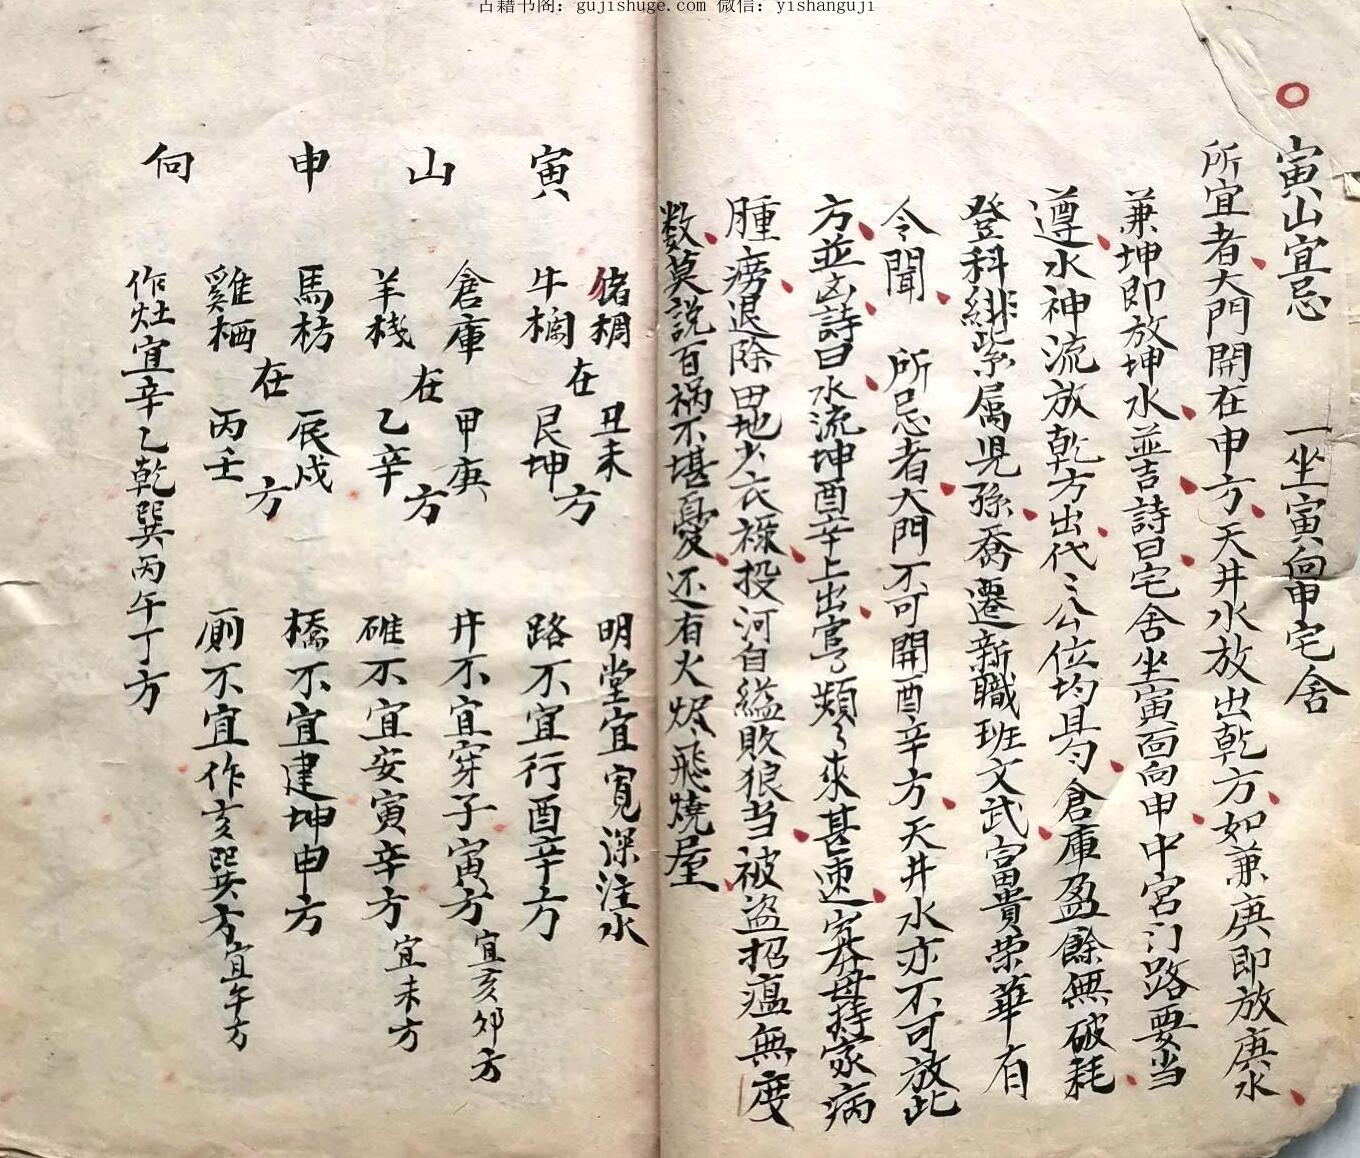 古籍书阁：gujishuge.com 微信：yishanguji
寅山宜忌　一坐寅向申宅舍
所宜者大門開在申方天井水放出乾方如兼庚即放庚水
兼坤即放坤水並吉詩曰宅舍坐寅面向申中宮门路要当
遵水神流放乾方出代〻公位均且勻倉庫盈餘無破耗
登科緋紫属児孫喬遷新職班文武富貴荣華有
令聞　所忌者大門不可開酉辛方天井水亦不可放此
方並凶詩曰水流坤酉辛上出官〻頻〻來甚速寡母持家病
腫癆退除田地少衣祿投河自縊敗狼当被盗招瘟無度
数莫說百禍不堪憂还有火烬飛燒屋
寅山申向
猪椆 牛欄 在 丑未 艮坤 方
倉庫 羊栈 在 甲庚 乙辛 方
馬枋 雞栖 在 辰戍 丙壬 方
作灶宜辛乙乾巽丙午丁方
明堂宜寬深注水
路不宜行酉辛方
井不宜穿子寅方 宜亥卯方
碓不宜安寅辛方 宜未方
橋不宜建坤申方
厠不宜作亥巽方 宜午方